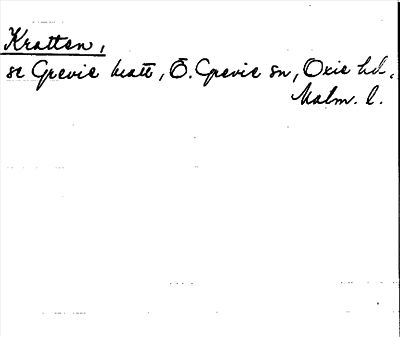 Kratten,
se Grevie kratt, Ö. Grevie sn, Oxie hd,
Malm. l.